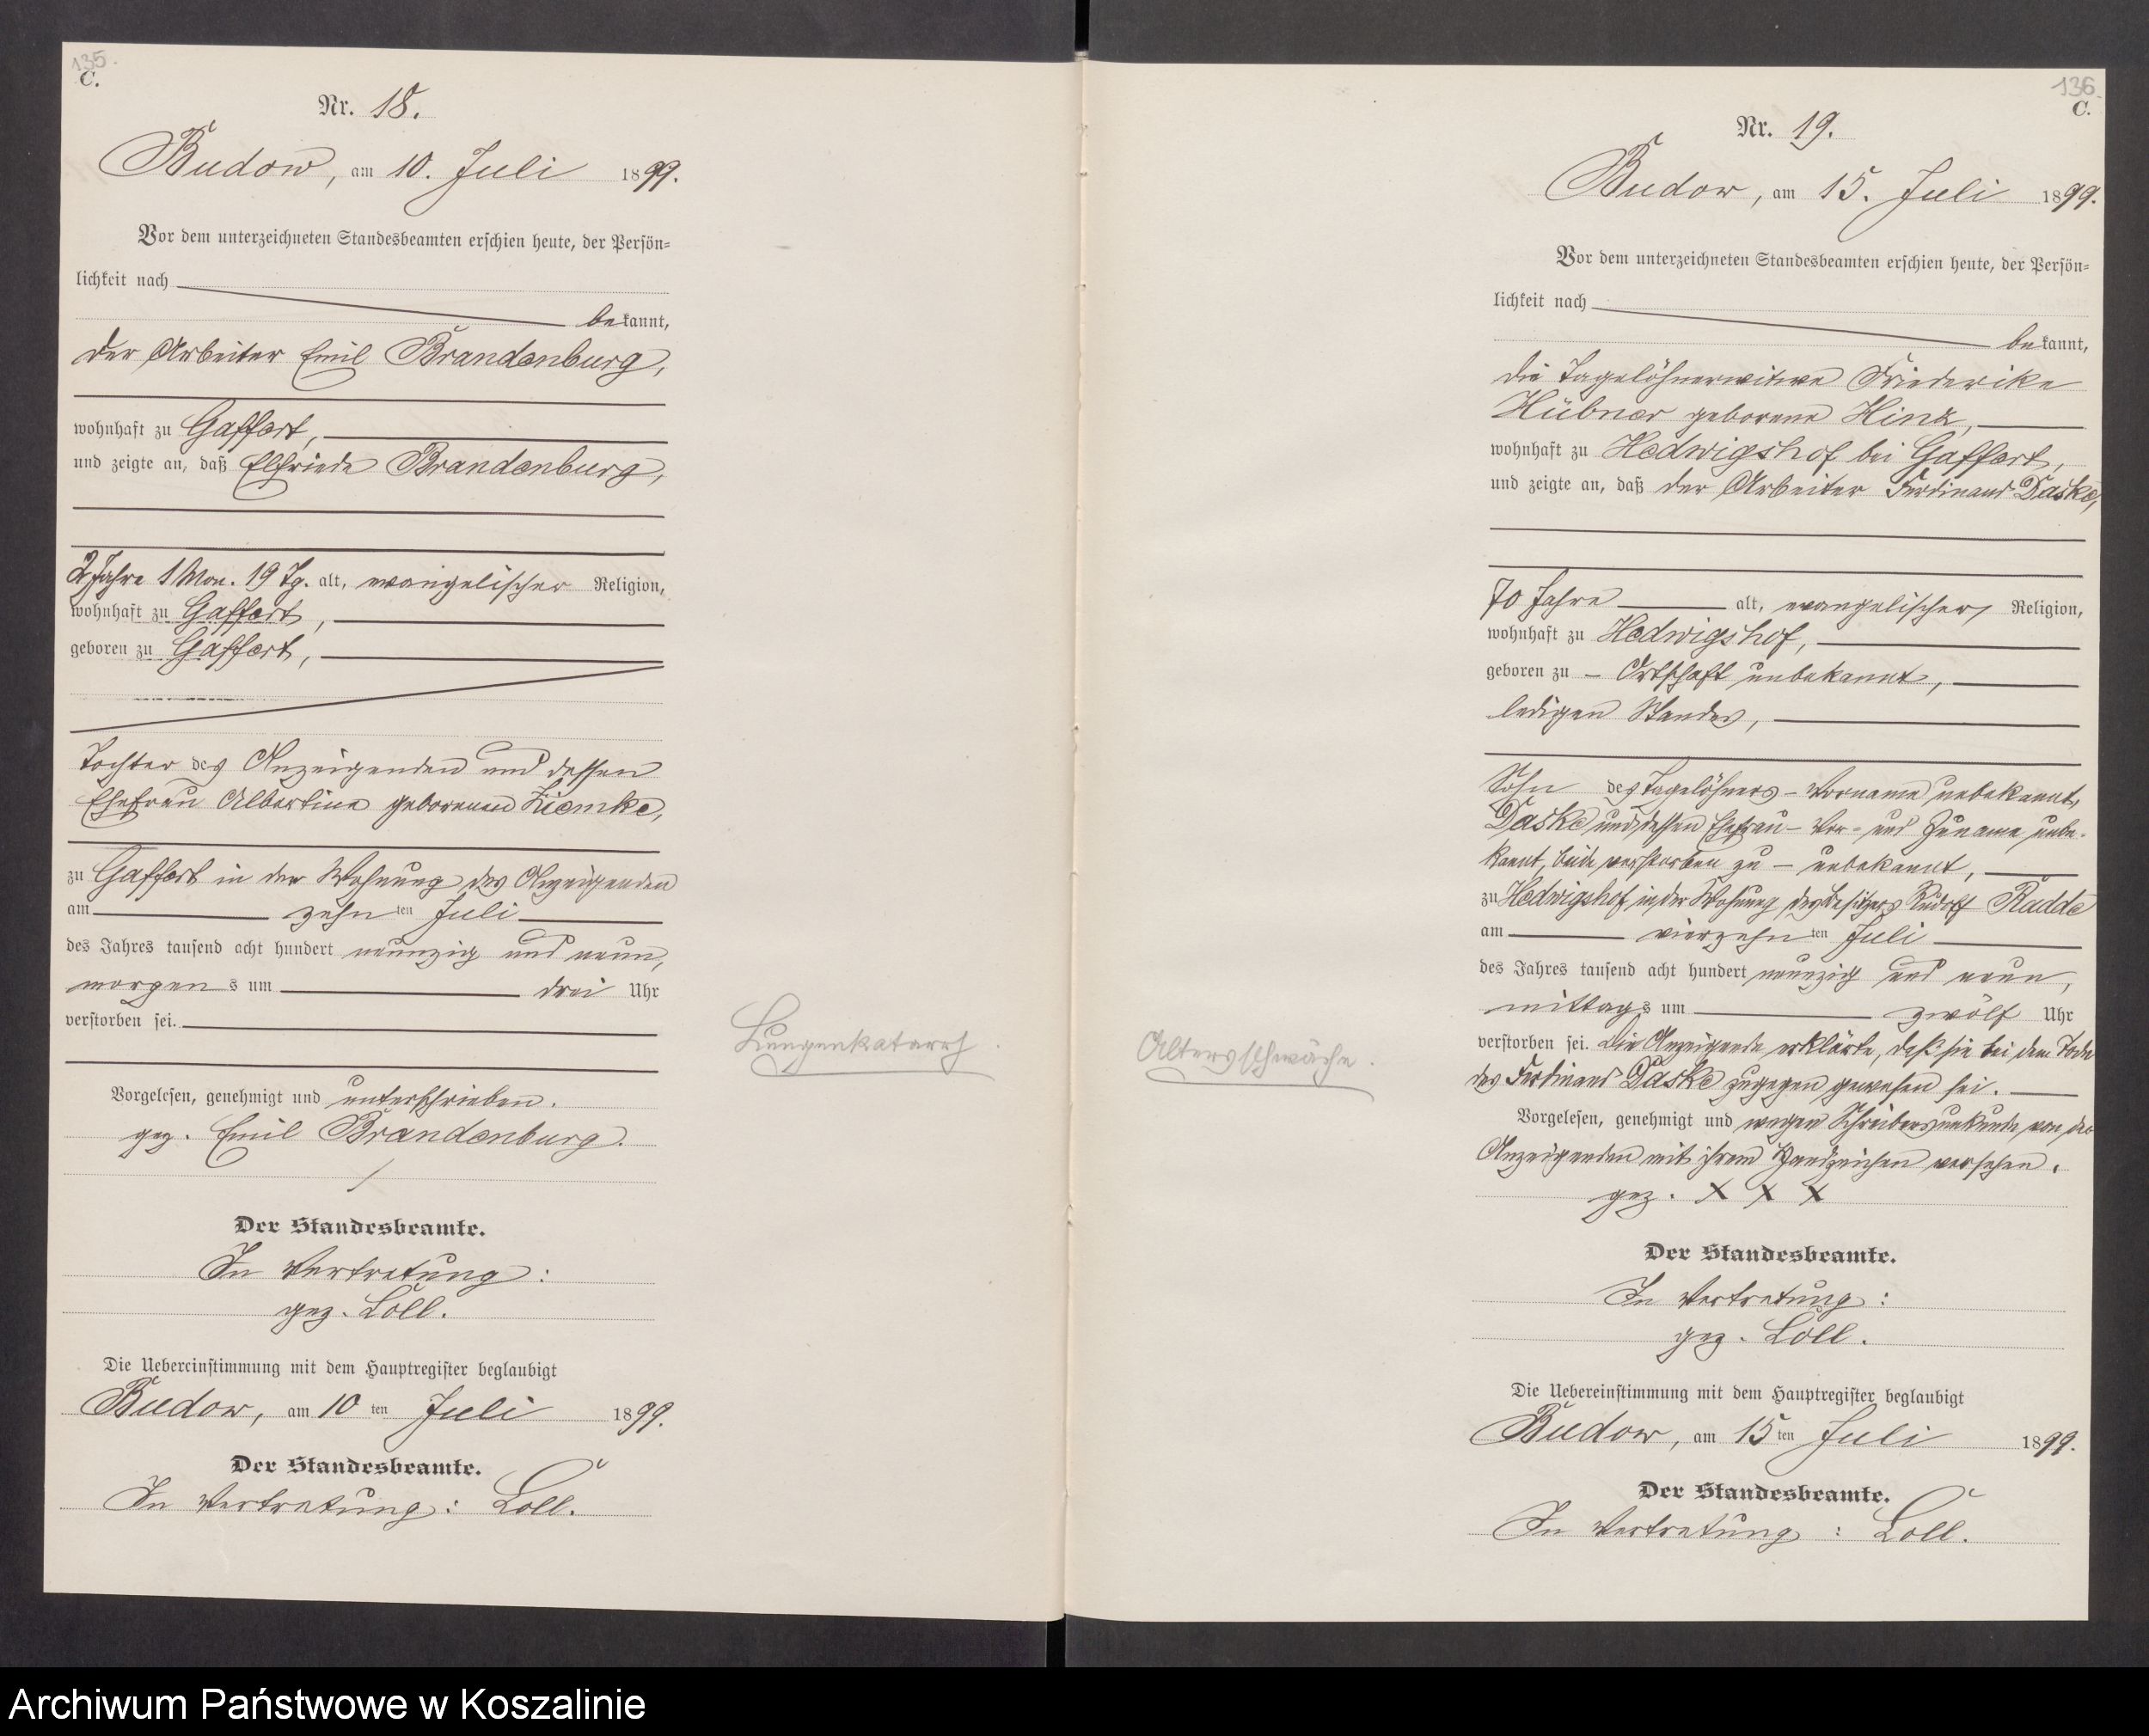 135.
C.
Nr. 18.
Budow, am 10. Juli 1899.
Vor dem unterzeichneten Standesbeamten erschien heute, der Persön=
lichkeit nach
bekannt,
der Arbeiter Emil Brandenburg,
wohnhaft zu Gaffert,
und zeigte an, daß Elfriede Brandenburg,
2 Jahre 1 Mon. 19 Tg. alt, evangelischer Religion,
wohnhaft zu Gaffert,
geboren zu Gaffert,
Tochter des Anzeigenden und dessen
Ehefrau Albertine geborenen Ziemke,
zu Gaffert in der Wohnung des Anzeigenden
am zehnten Juli
des Jahres tausend acht hundert neunzig und neun,
morgens um drei Uhr
verstorben sei.
Vorgelesen, genehmigt und unterschrieben.
gez. Emil Brandenburg.
Der Standesbeamte.
In Vertretung:
gez. Loll.
Die Uebereinstimmung mit dem Hauptregister beglaubigt
Budow, am 10ten Juli 1899.
Der Standesbeamte.
In Vertretung: Loll.
Lungenkatarrh.
136.
C.
Nr. 19.
Budow, am 15. Juli 1899.
Vor dem unterzeichneten Standesbeamten erschien heute, der Persön=
lichkeit nach
bekannt,
die Tagelöhnerwitwe Friederike
Hübner geborene Hinz,
wohnhaft zu Hedwigshof bei Gaffert,
und zeigte an, daß der Arbeiter Ferdinand Daske,
70 Jahre alt, evangelischer Religion,
wohnhaft zu Hedwigshof,
geboren zu – Ortschaft unbekannt,
ledigen Standes,
Sohn des Tagelöhners – Vorname unbekannt,
Daske und dessen Ehefrau – Vor- und Zuname unbe-
kannt, beide verstorben zu – unbekannt,
zu Hedwigshof in der Wohnung des Besitzers Rudolf Radde
am vierzehnten Juli
des Jahres tausend acht hundert neunzig und neun,
mittags um zwölf Uhr
verstorben sei. Die Anzeigende erklärte, daß sie bei dem Tode
des Ferdinand Daske zugegen gewesen sei.
Vorgelesen, genehmigt und wegen Schreibensunkunde von der
Anzeigenden mit ihrem Handzeichen versehen.
gez. X X X
Der Standesbeamte.
In Vertretung:
gez. Loll.
Die Uebereinstimmung mit dem Hauptregister beglaubigt
Budow, am 15ten Juli 1899.
Der Standesbeamte.
In Vertretung: Loll.
Altersschwäche.
Archiwum Państwowe w Koszalinie